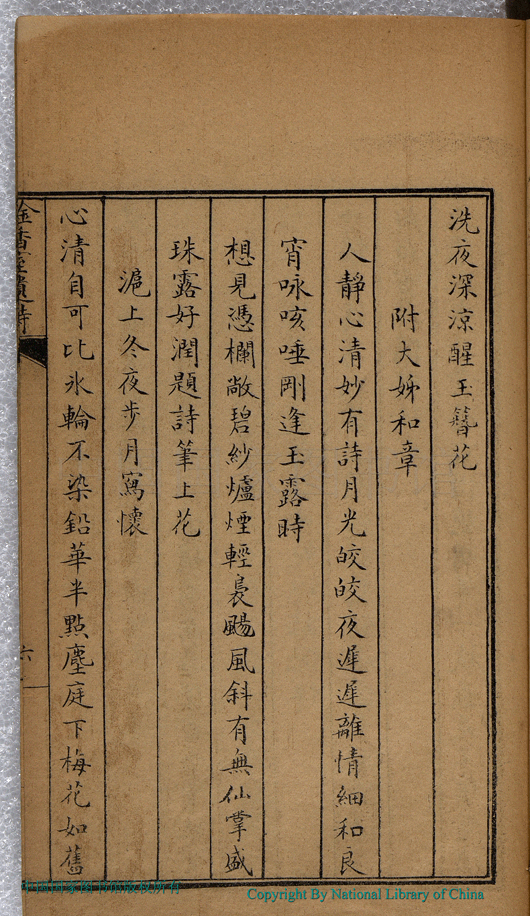 洗夜深涼醒玉簪花
附大姊和章
人靜心清妙有詩月光皎皎夜遲遲離情細和良
宵咏咳唾剛逢玉露時
想見憑欄敞碧紗爐煙輕裊颺風斜有無仙掌盛
珠露好潤題詩筆上花
滬上冬夜步月寫懷
心清自可比氷輪不染鉛華半點塵庭下梅花如舊
六
Copyright By National Library of China